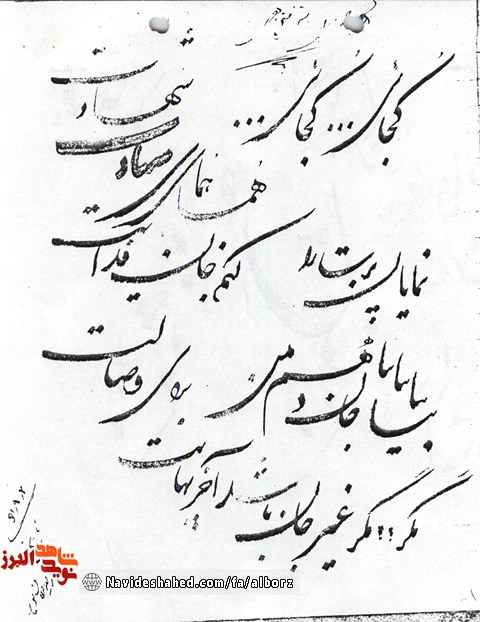 کجائی... کجائی... شهادت
همای نمای سعادت
نمایان پرت را کنم جان فدایت
بیا بیا بیا جان دهم من برای وصالت
مگر؟؟ مگر غیر جان باشد آخر بهایت
نوید شاهد البرز
Navideshahed.com/fa/alborz